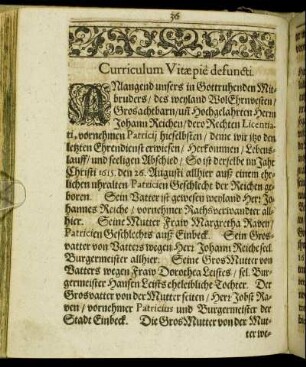 36
Curriculum Vitæ piè defuncti.
ANlangend unsers in Gott ruhenden Mit-
bruders / des weyland WolEhrnvesten /
Grosachtbarn / uñ Hochgelahrten Herrn
Johann Reichen / dero Rechten Licentia-
ti, vornehmen Patricij hieselbsten / deme wir itzo den
letzten Ehrendienst erwiesen / Herkommen / Lebens-
lauff / und seeligen Abschied / So ist derselbe im Jahr
Christi 1615. den 26. Augusti allhier auß einem ehr-
lichen uhralten Patricien Geschlecht der Reichen ge-
boren. Sein Vatter ist gewesen weyland Herr Jo-
hannes Reiche / vornehmer Raths verwandter all-
hier. Seine Mutter Fraw Margretha Raven /
Patricien Geschlechts auß Einbeck. Sein Gros-
vatter von Vatters wegen Herr Johann Reiche sel.
Burgermeister allhier. Seine Gros Mutter von
Vatters wegen Fraw Dorothea Leistes / sel. Bur-
germeister Hansen Leists eheleibliche Tochter. Der
Grosvatter von der Mutter seiten / Herr Jobst Ra-
ven / vornehmer Patricius und Burgermeister der
Stadt Einbeck. Die Gros Mutter von der Mut-
ter we-